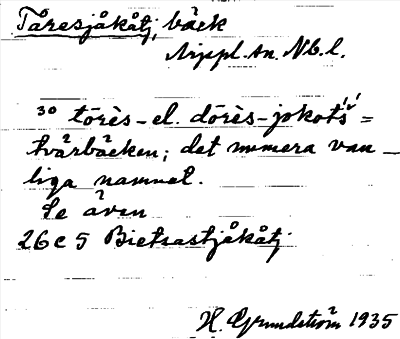 Tåresjåkåtj, bäck
Arjepl. sn. Nb. l.
30 tōrès- el. dōrès-jokotš =
tvärbäcken; det numera van-
liga namnet.
Se även
26 c 5 Bietsastjåkåtj
H. Grundström 1935